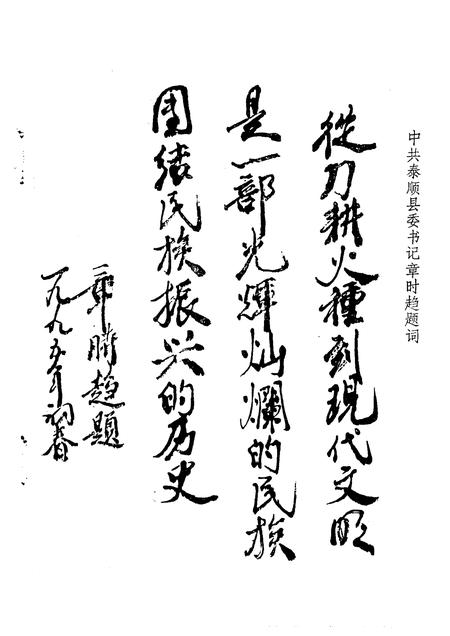 中共泰顺县委书记章时趋题词
從刀耕火種到現代文明
是一部光輝灿爛的民族
团结民族振兴的历史
章时趋题
一九九五年初春